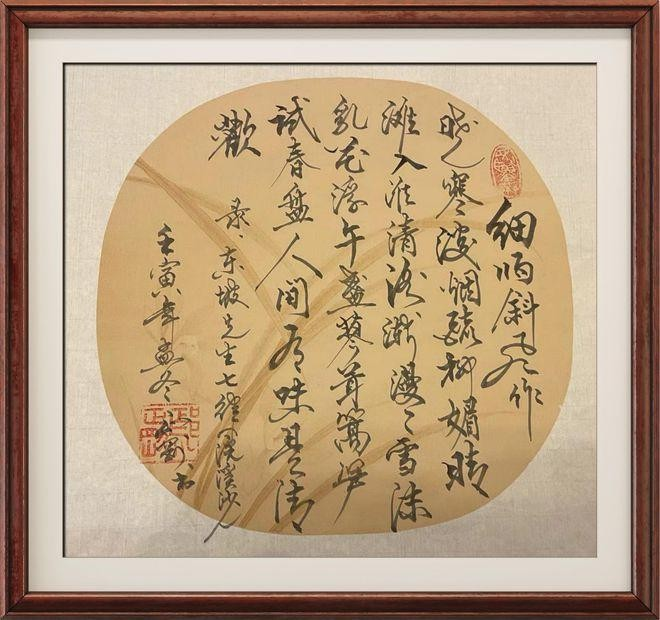 细雨斜风作
晓寒淡烟疏柳媚晴
滩入淮清洛渐漫漫雪沫
乳花浮午盏蓼茸蒿笋
试春盘人间有味是清
欢
录东坡先生七律浣溪沙
壬寅年孟冬 刘 书